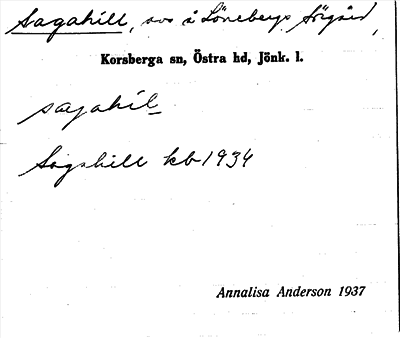 Sagahill, avs å Lönebergs Sörgård,
Korsberga sn, Östra hd, Jönk. l.
sagahil
Sagahill kb 1934
Annalisa Anderson 1937